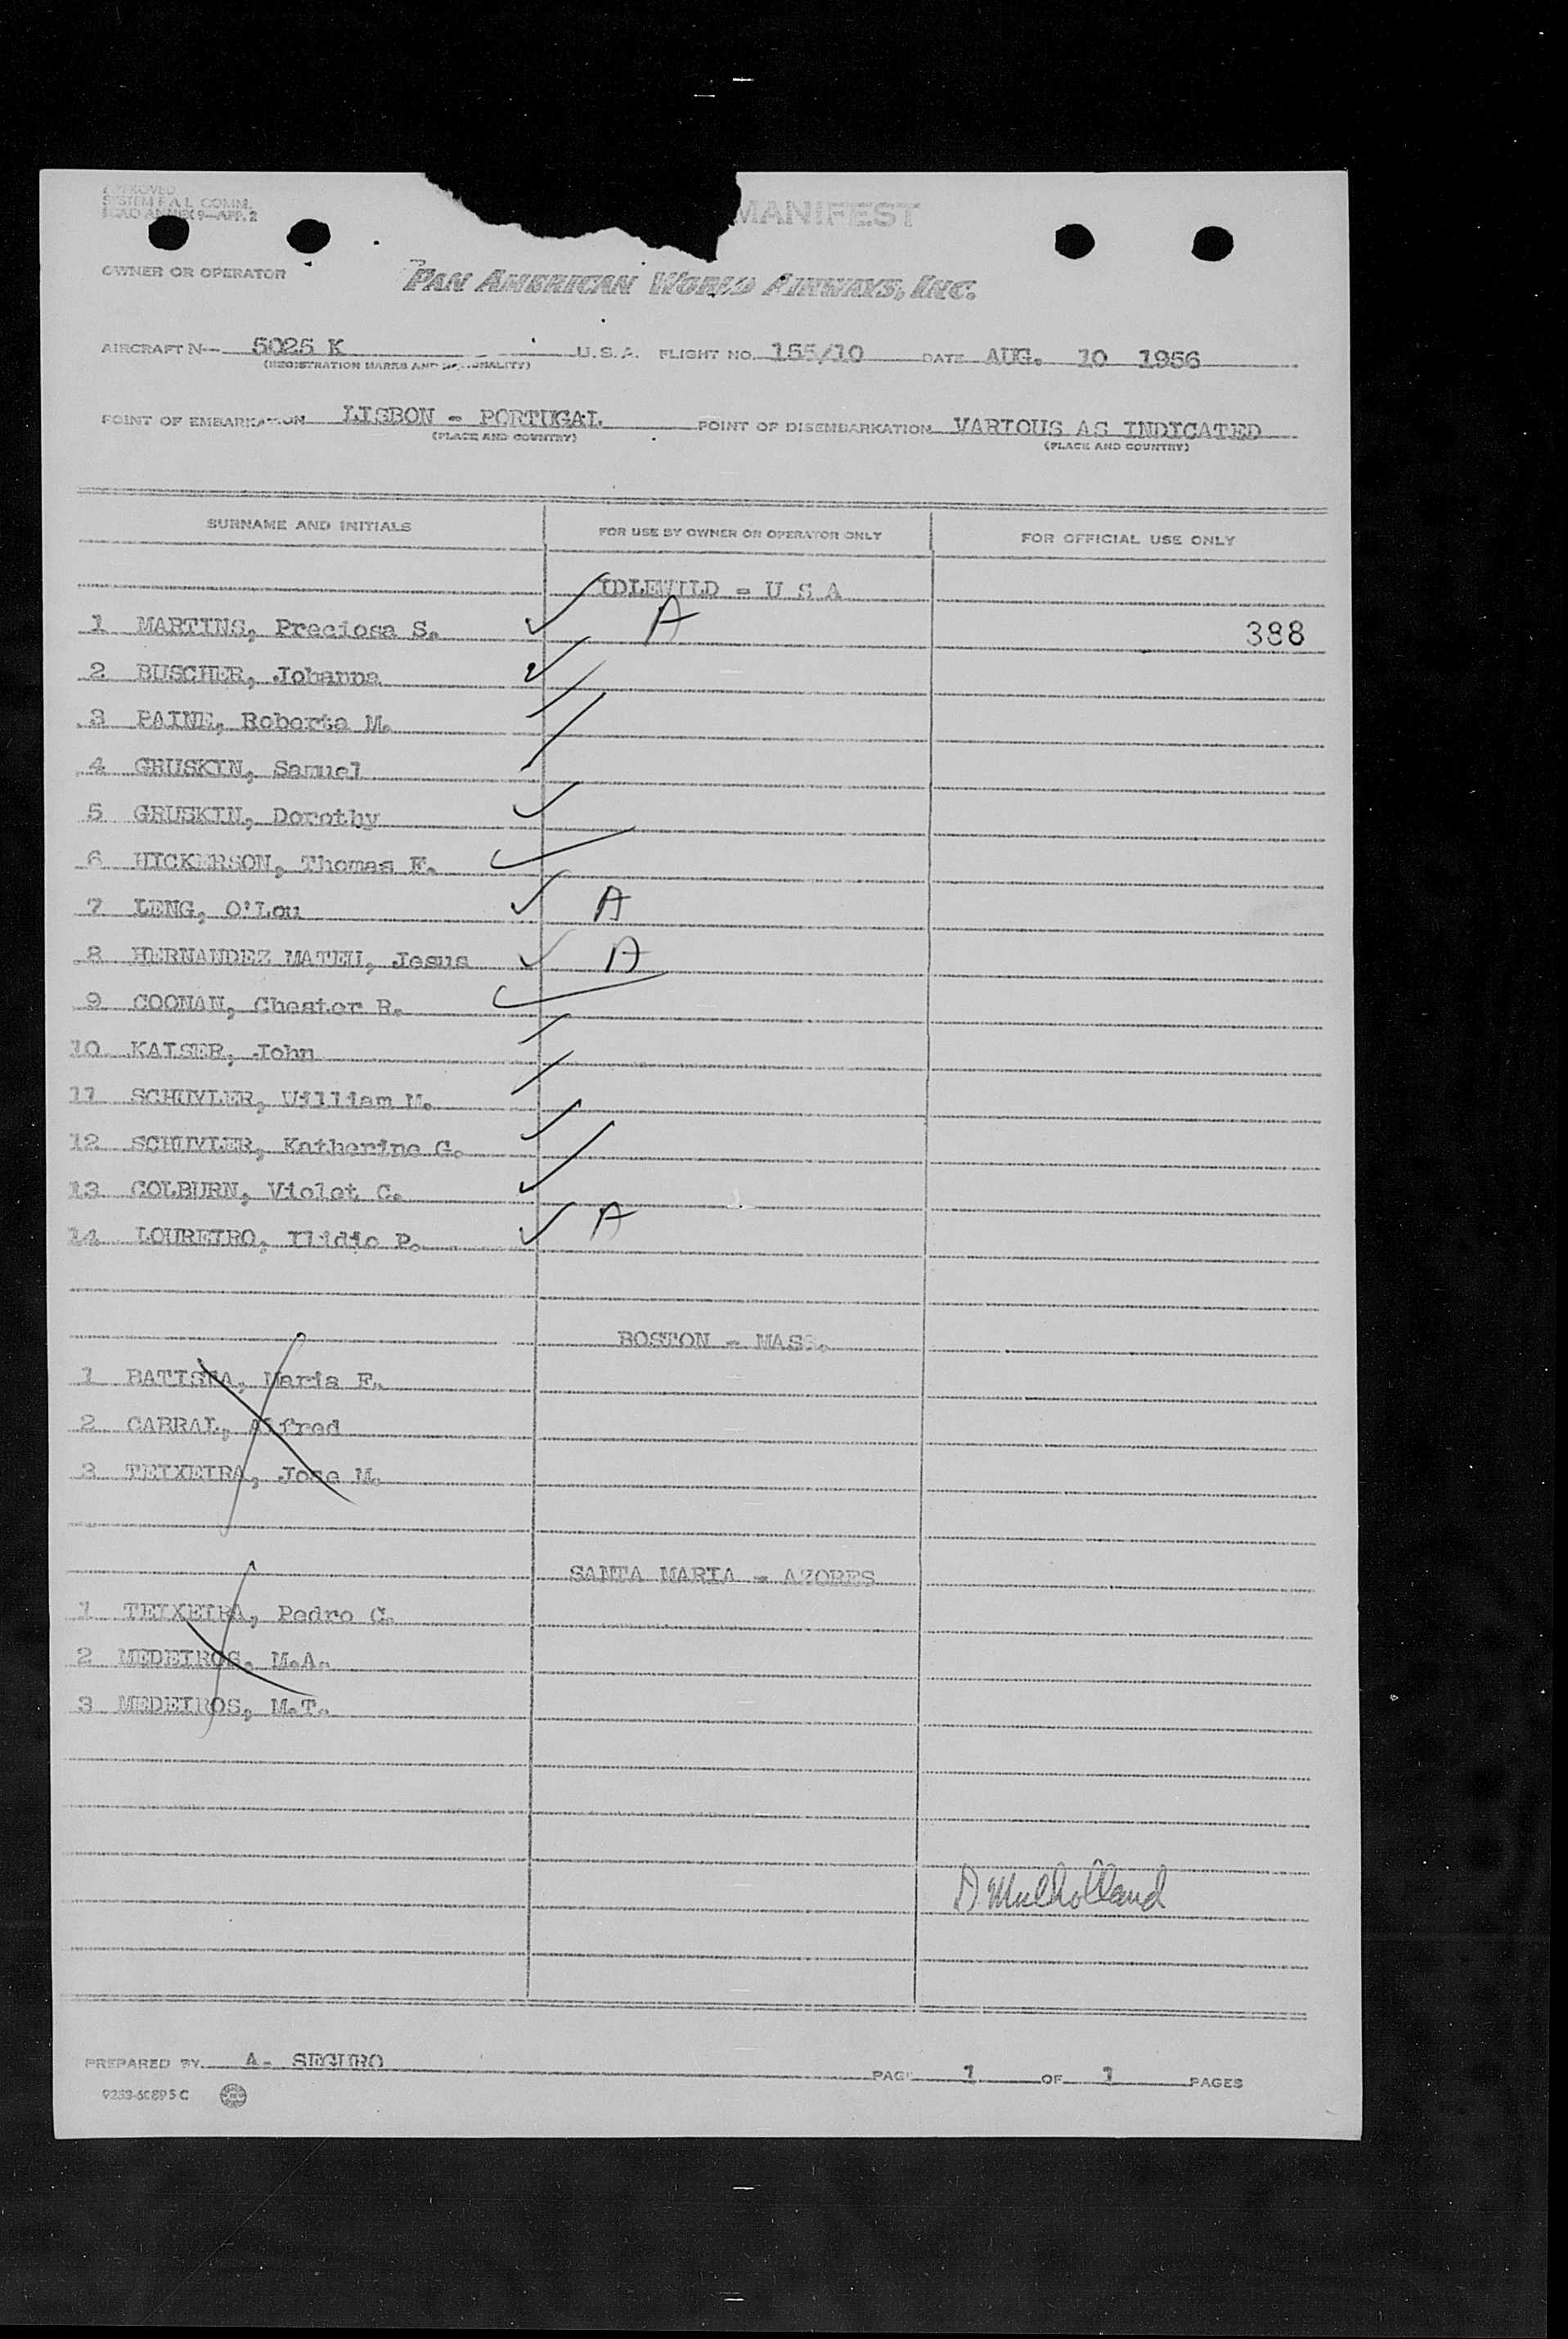 APPROVED
SYSTEM F.A.L. COMM.
ICAO ANNEX 9—APP. 2
MANIFEST
OWNER OR OPERATOR PAN AMERICAN WORLD AIRWAYS, INC.
AIRCRAFT N— 5025 K U.S.A. FLIGHT NO. 155/10 DATE AUG. 10 1956
(REGISTRATION MARKS AND NATIONALITY)
POINT OF EMBARKATION LISBON - PORTUGAL POINT OF DISEMBARKATION VARIOUS AS INDICATED
(PLACE AND COUNTRY) (PLACE AND COUNTRY)
SURNAME AND INITIALS FOR USE BY OWNER OR OPERATOR ONLY FOR OFFICIAL USE ONLY
IDLEWILD - U S A
1 MARTINS, Preciosa S. A 388
2 BUSCHER, Johanna
3 PAINE, Roberta M.
4 GRUSKIN, Samuel
5 GRUSKIN, Dorothy
6 HICKERSON, Thomas F.
7 LENG, O'Lou A
8 HERNANDEZ MATEU, Jesus A
9 COONAN, Chester R.
10 KAISER, John
11 SCHUYLER, William M.
12 SCHUYLER, Katherine G.
13 COLBURN, Violet C.
14 LOUREIRO, Ilidio P. A
BOSTON - MASS.
1 BATISTA, Maria F.
2 CABRAL, Alfred
3 TEIXEIRA, Jose M.
SANTA MARIA - AZORES
1 TEIXEIRA, Pedro C.
2 MEDEIROS, M.A.
3 MEDEIROS, M.T.
D. Mulholland
PREPARED BY A. SEGURO PAGE 1 OF 1 PAGES
9253-50895 C